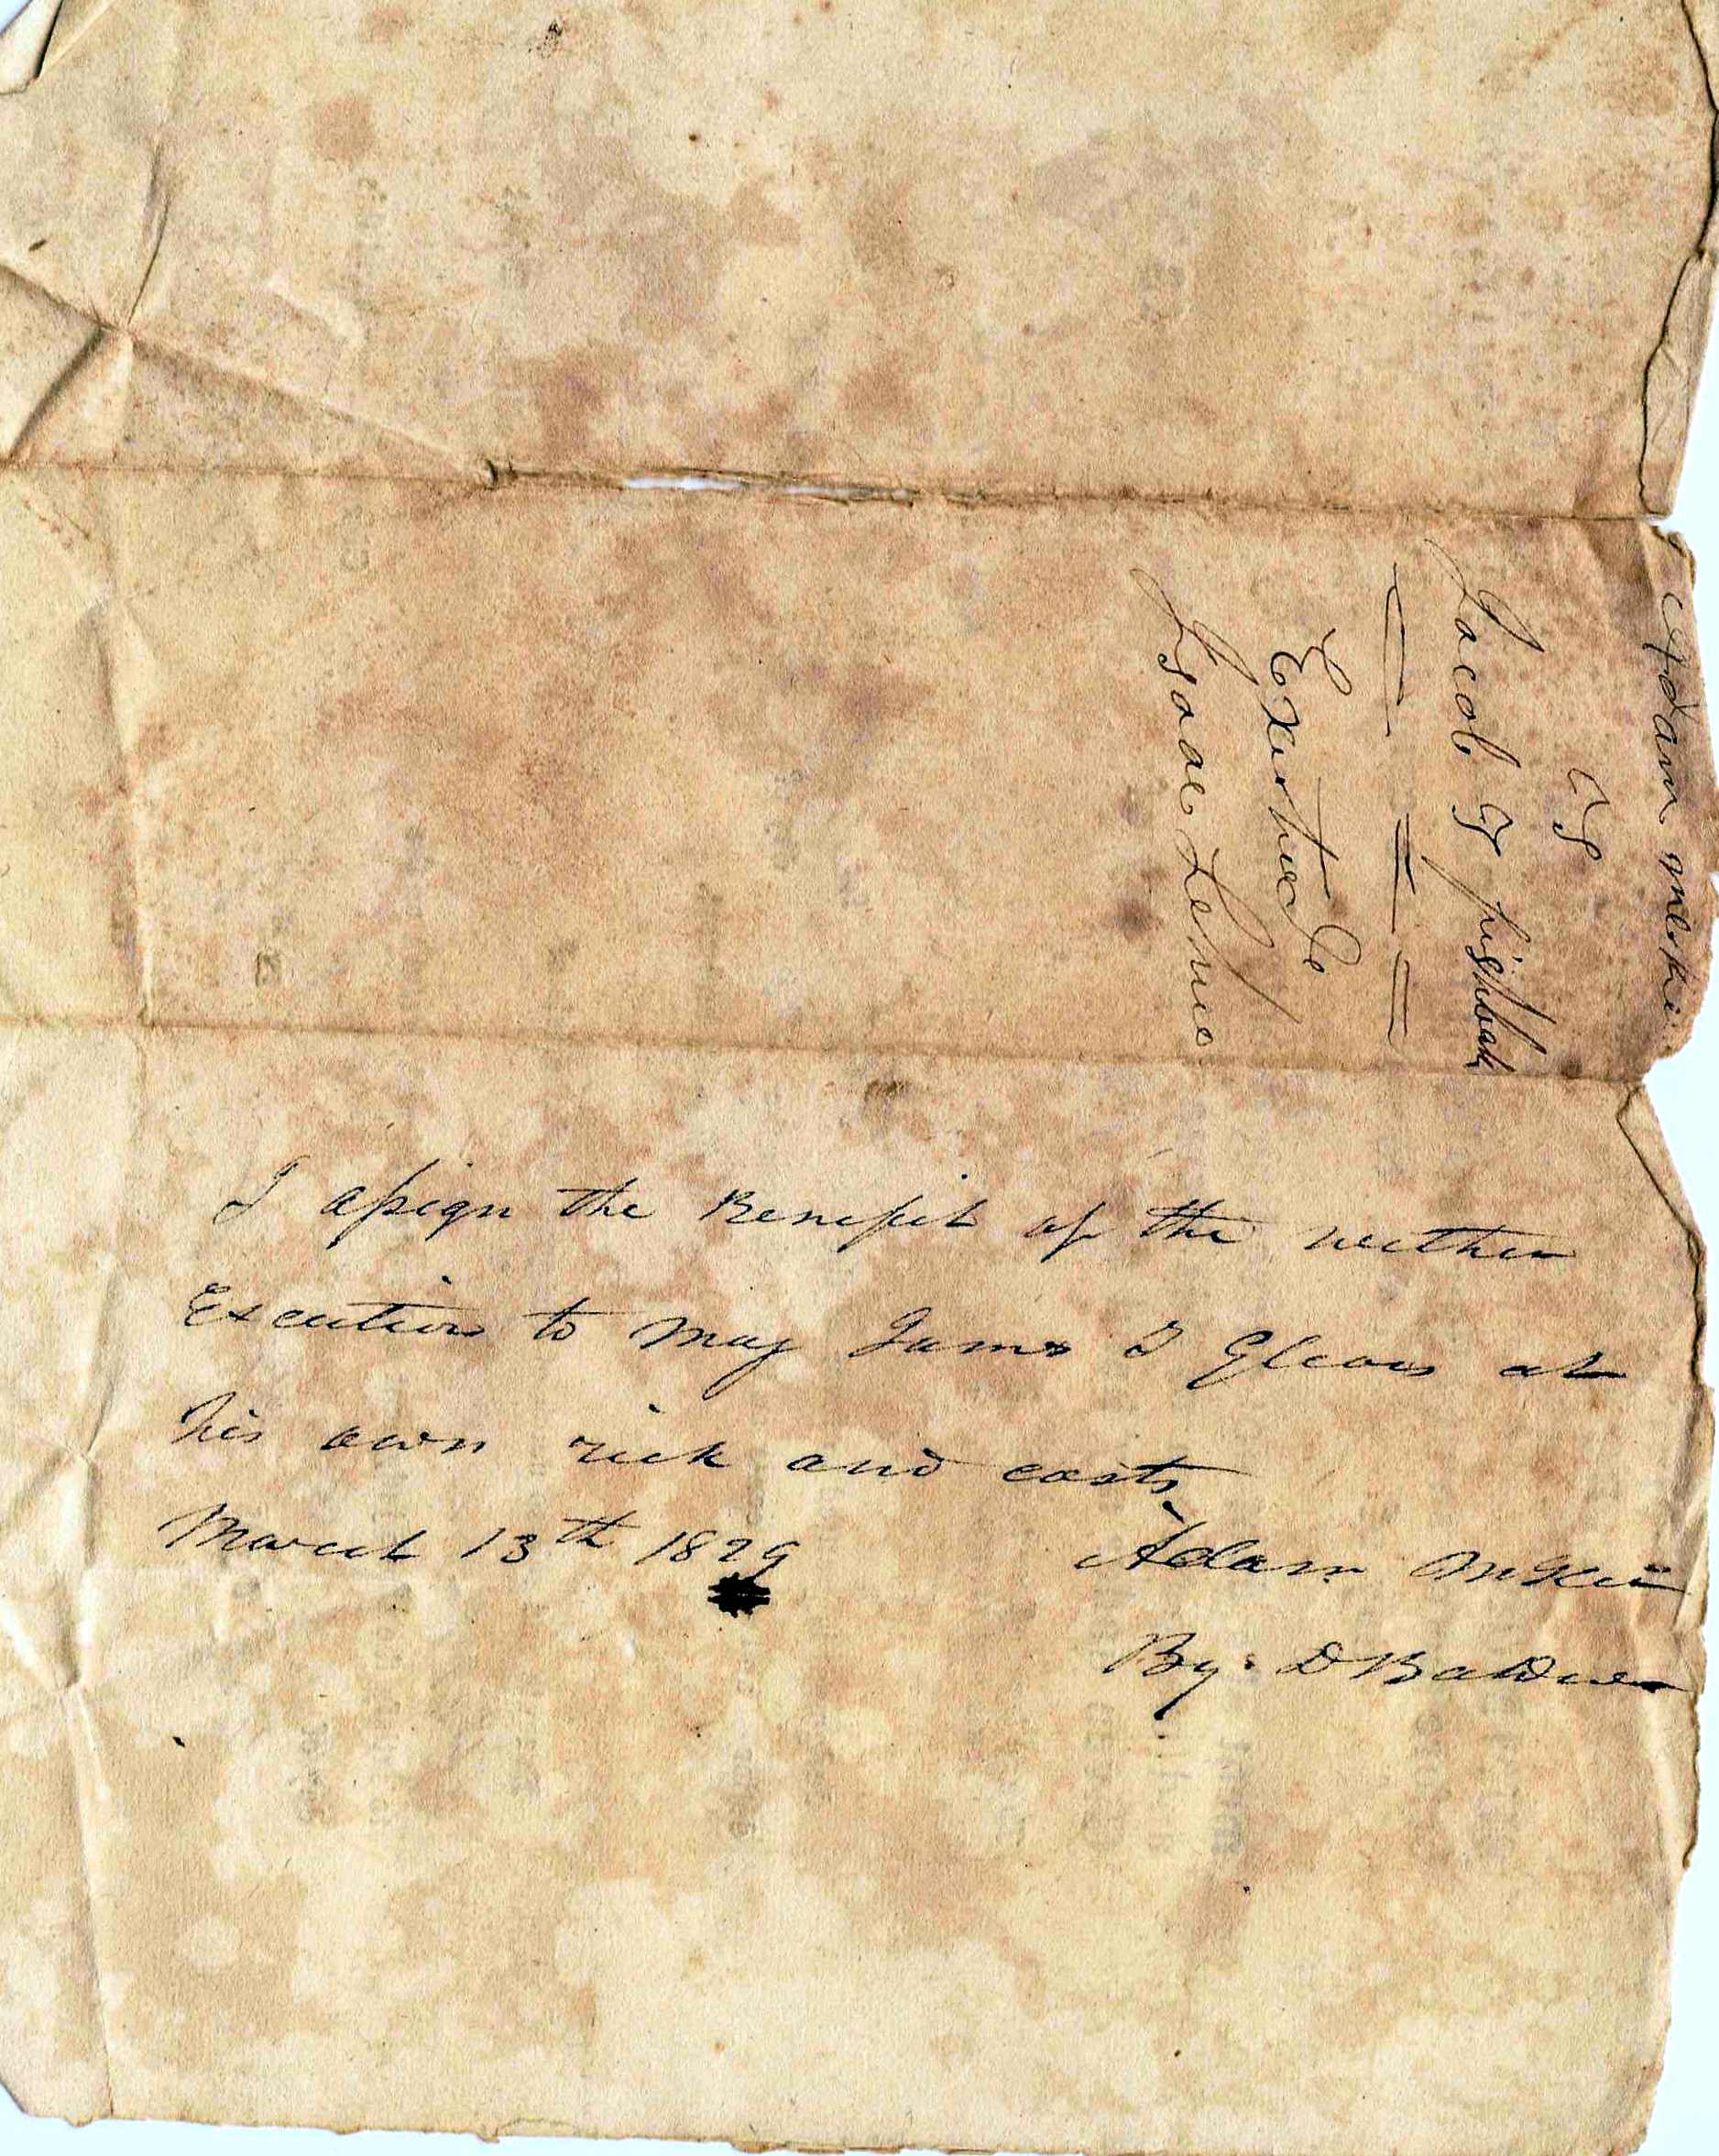 Adam
vs
Jacob T fishbak
Isaac Lehue
I assign the Benefit of the within
Execution to Maj James T Gleaves at
his own risk and costs
March 13th 1829
Adam McKee
By D Baldwin